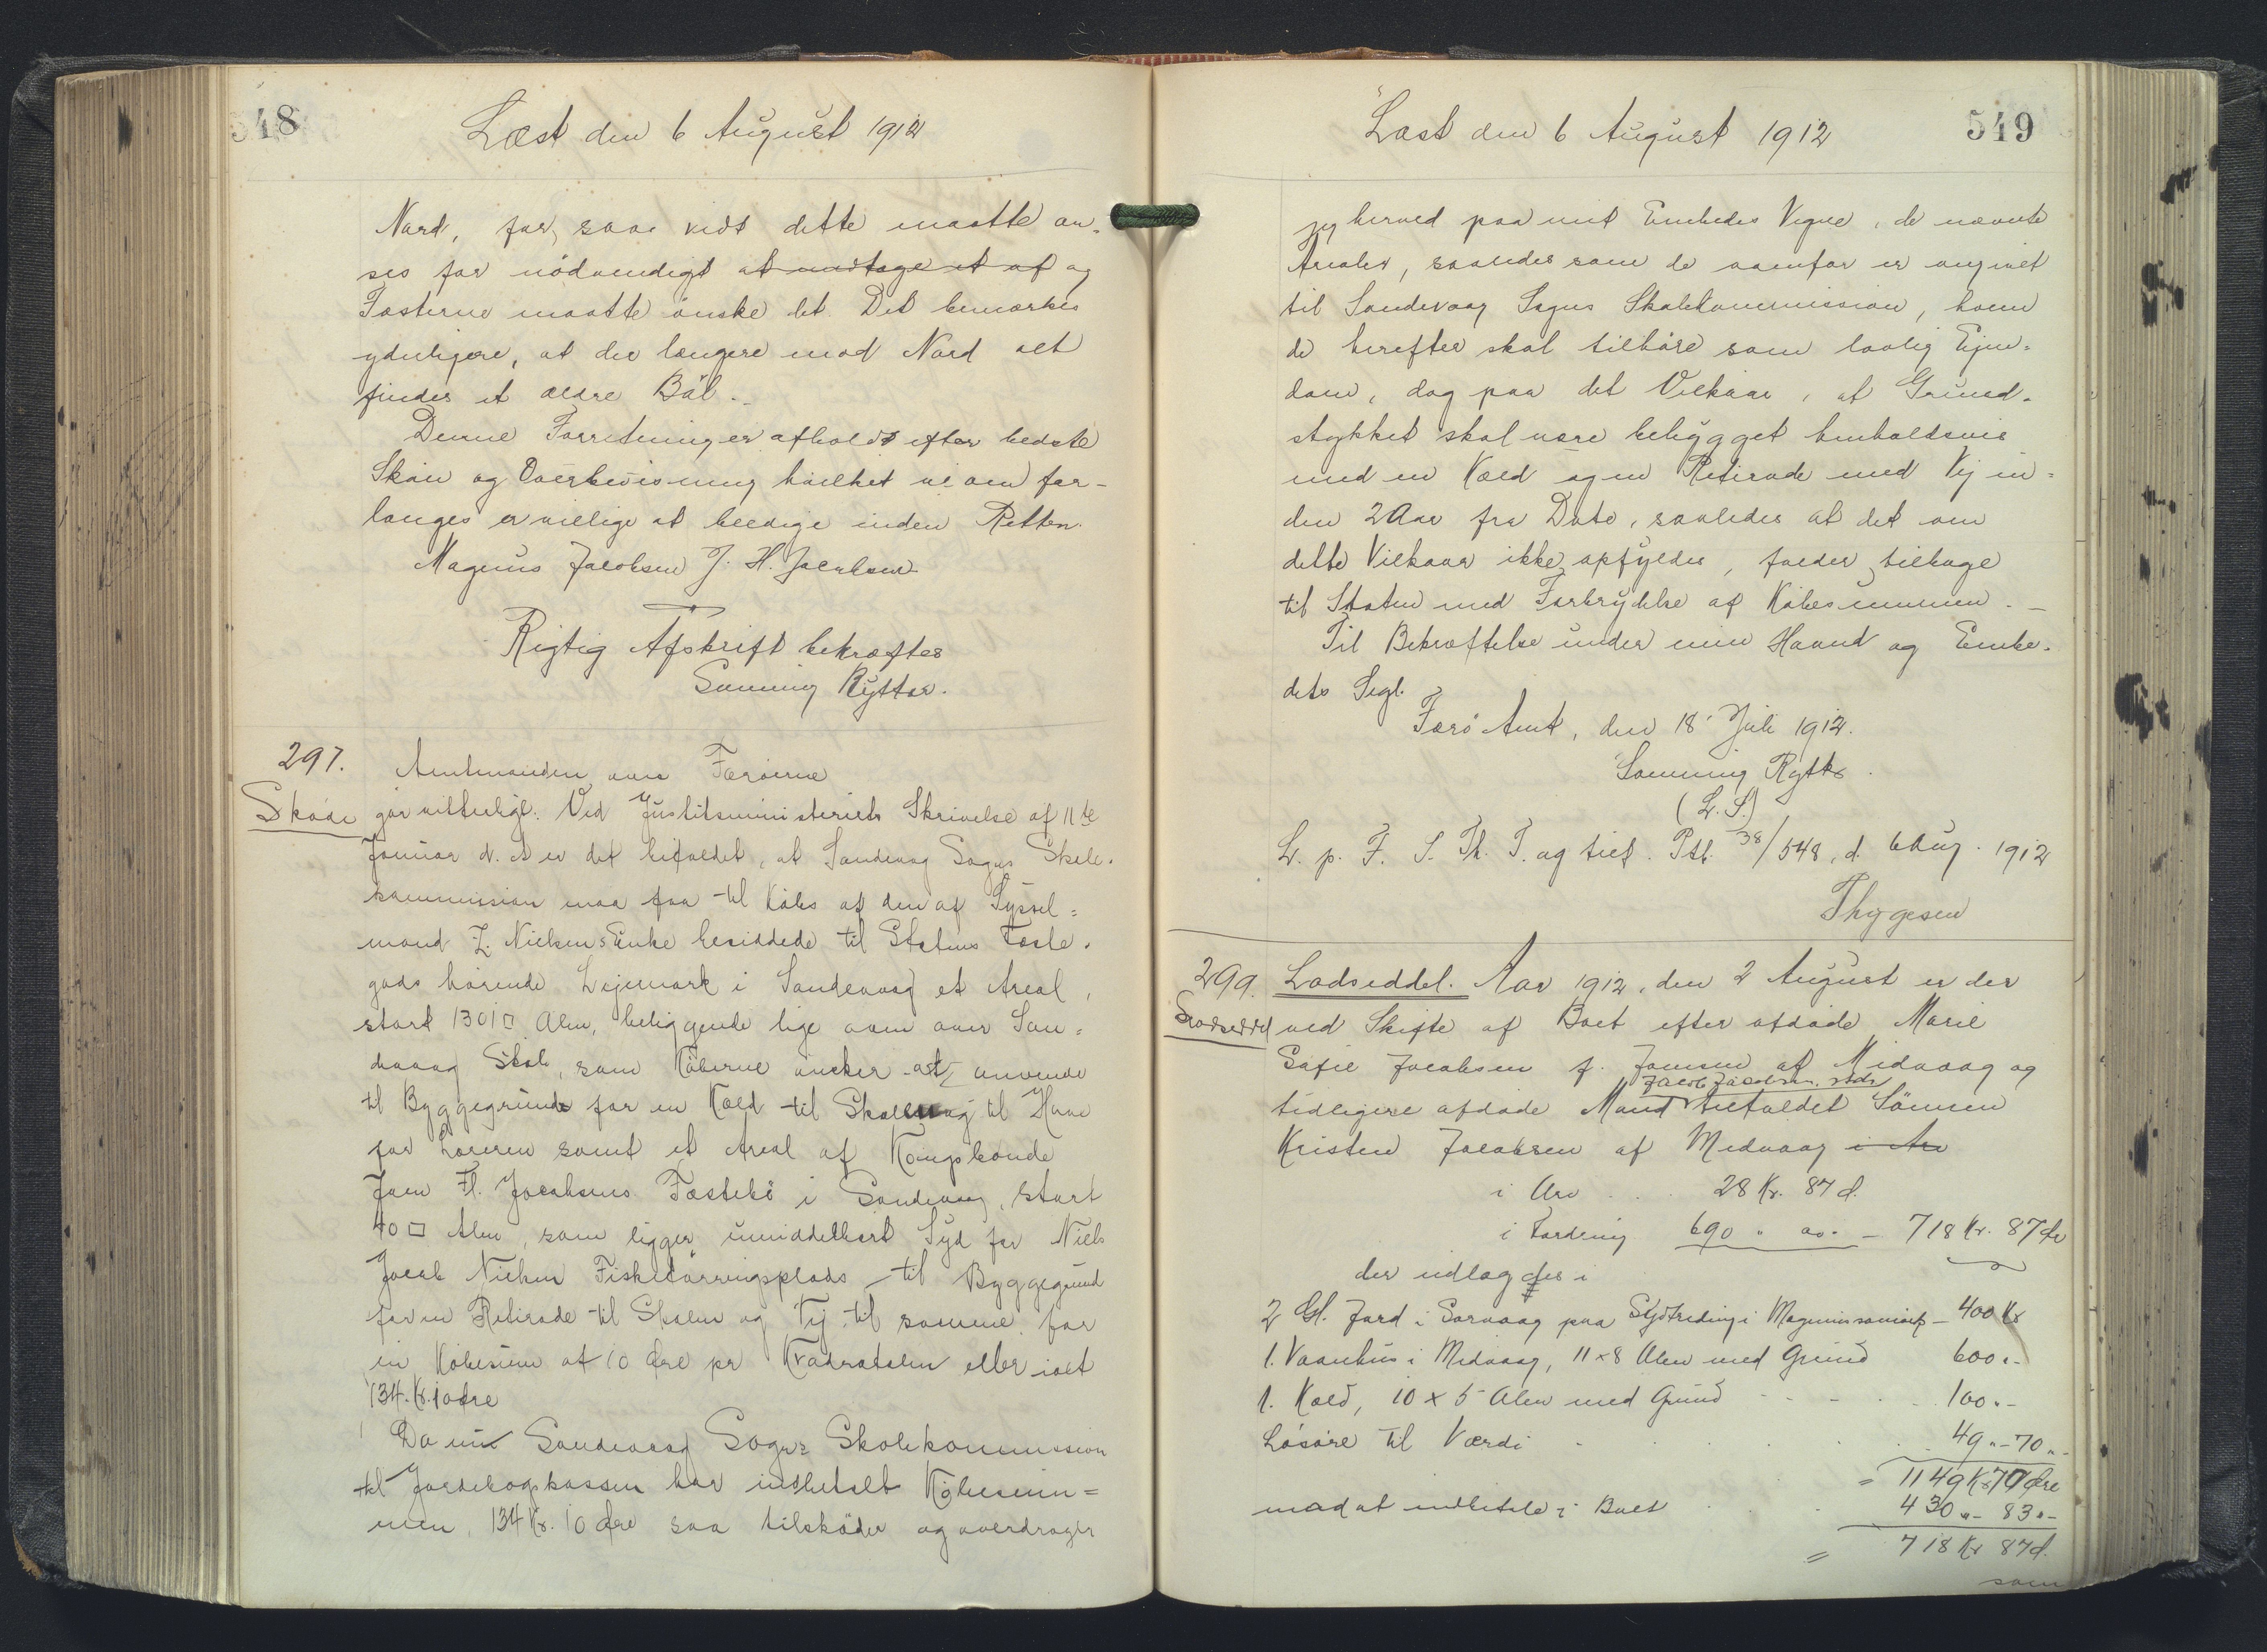 548
Læst den 6 August 1912
Nord, for saa vidt dette maatte an-
ses for nödvendigt at modtage et af og
Fæsterne maatte önske det. Det bemærkes
yderligere, at der længere mod Nord alt
findes et ældre Böl.
Denne Forretning er afholdt efter bedste
Skön og Overbevisning hvilket vi om for-
langes er villige at beedige inden Retten.
Magnus Jacobsen J. H. Jacobsen
Rigtig Afskrift bekræftes
Svenning Rytter.
297.
Amtmanden over Færöerne
Sköde
gör vitterligt: Ved Justitsministeriets Skrivelse af 11te
Januar d. A er det bifaldet, at Sandevaag Sogns Skole-
kommission maa faa til Köbs af den af Syssel-
mand Z. Nielsens Enke besiddede til Statens Fæste-
gods hörende Lejemark i Sandevaag et Areal,
stort 1301 □ Alen, beliggende lige oven over San-
devaag Skole, som Köberne önsker at anvende
til Byggegrund for en Kæld til Skolen og til Have
for Læreren samt et Areal af Kongsbonde
Joen Fl. Jacobsens Fæstebö i Sandevaag, stort
40 □ Alen, som ligger umiddelbart Syd for Niels
Jacob Nielsen Fisketörringsplads – til Byggegrund
for en Retirade til Skolen og Vej til samme for
en Köbesum af 10 Øre pr Kvadratalen eller ialt
134. Kr. 10 Øre
Da nu Sandevaag Sogns Skolekommission
til Jordebogskassen har indbetalt Köbesum-
men, 134 Kr. 10 Øre saa tilsköder og overdrager
549
Læst den 6 August 1912
jeg herved paa mit Embedes Vegne, de nævnte
Arealer, saaledes som de ovenfor er angivet
til Sandevaag Sogns Skolekommission, hvem
de herefter skal tilhöre som lovlig Ejen-
dom, dog paa det Vilkaar, at Grund-
stykket skal være bebygget henholdsvis
med en Kæld og en Retirade med Vej in-
den 2 Aar fra Dato, saaledes at det om
dette Vilkaar ikke opfyldes, falder tilbage
til Staten med Fortrydelse af Köbesummen. –
Til Bekræftelse under min Haand og Embe-
dets Segl.
Færö Amt, den 18' Juli 1912.
Svenning Rytter.
(L. S.)
L. p. F. S. Th. T. og tilf. Ptb. 38/548, d. 6 Aug. 1912
Thygesen
299.
Lodseddel. Aar 1912, den 2 August er der
Lodseddel
ved Skifte af Boet efter afdöde Marie
Sofie Jacobsen f. Joensen af Midvaag og
Jacob Jacobsen, steds
tidligere afdöde Mand tilfaldet Sönnen
Kristen Jacobsen af Midvaag i Arv
i Arv . . . 28 Kr. 87 Ø.
i Fordring 690 " oo - – 718 Kr. 87 Øre
der udlagdes i
2 Gl. Jord i Sorvaag paa Sydtreding i – 400 Kr
1. Vaanhus i Midvaag, 11 x 8 Alen med Grund 600 " -
1. Kæld, 10 x 5 Alen med Grund - - - 100 " -
Lösöre til Værdi . . . . 49 " - 70 " -
= 1149 Kr 70 Øre
mod at indbetale i Boet . . 430 " - 83 " -
= 718 Kr 87 Ø.
som